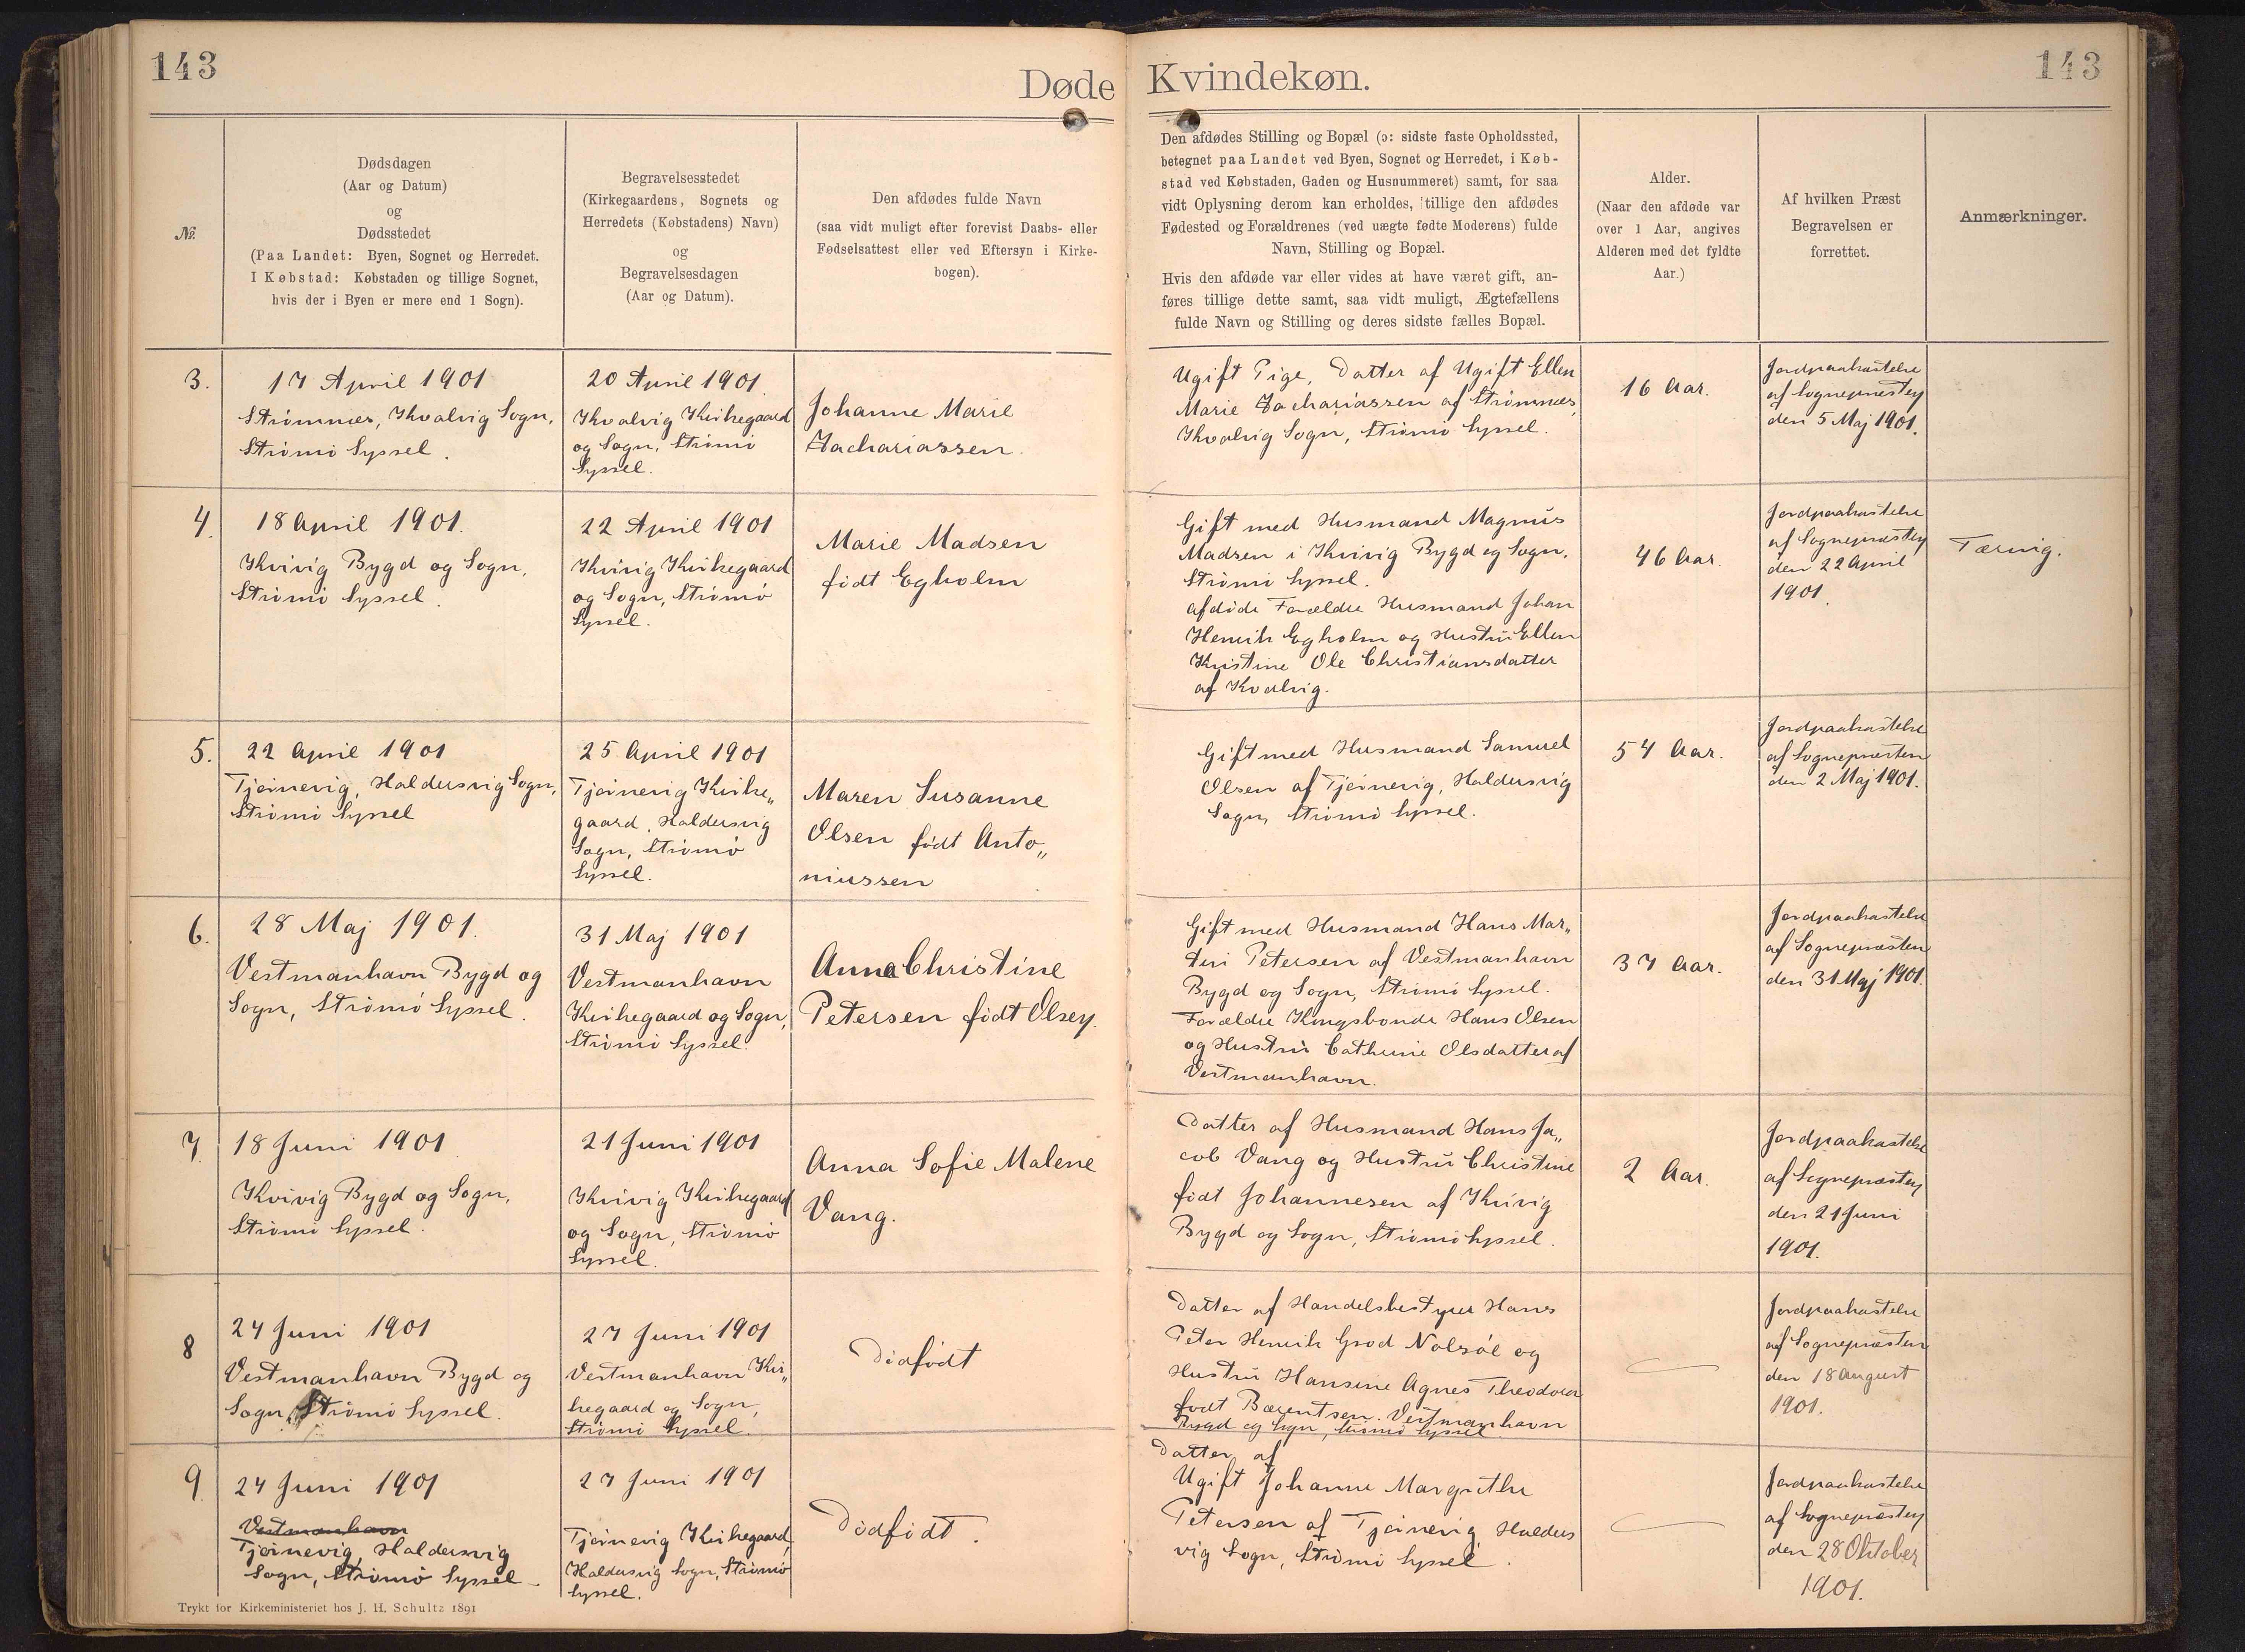 143
143
Døde Kvindekøn.
№.
Dødsdagen
(Aar og Datum)
og
Dødsstedet
(Paa Landet: Byen, Sognet og Herredet.
I Købstad: Købstaden og tillige Sognet,
hvis der i Byen er mere end 1 Sogn).
Begravelsesstedet
(Kirkegaardens, Sognets og
Herredets (Købstadens) Navn)
og
Begravelsesdagen
(Aar og Datum).
Den afdødes fulde Navn
(saa vidt muligt efter forevist Daabs- eller
Fødselsattest eller ved Eftersyn i Kirke-
bogen).
Den afdødes Stilling og Bopæl (ɔ: sidste faste Opholdssted,
betegnet paa Landet ved Byen, Sognet og Herredet, i Køb-
stad ved Købstaden, Gaden og Husnummeret) samt, for saa
vidt Oplysning derom kan erholdes, tillige den afdødes
Fødested og Forældrenes (ved uægte fødte Moderens) fulde
Navn, Stilling og Bopæl.
Hvis den afdøde var eller vides at have været gift, an-
føres tillige dette samt, saa vidt muligt, Ægtefællens
fulde Navn og Stilling og deres sidste fælles Bopæl.
Alder.
(Naar den afdøde var
over 1 Aar, angives
Alderen med det fyldte
Aar.)
Af hvilken Præst
Begravelsen er
forrettet.
Anmærkninger.
3.
17 April 1901
Strömnæs, Kvalvig Sogn,
Strömö Syssel.
20 April 1901.
Kvalvig Kirkegaard
og Sogn, Strömö
Syssel.
Johanne Marie
Zachariassen.
Ugift Pige, Datter af Ugift Ellen
Marie Zachariassen af Strömnæs,
Kvalvig Sogn, Strömö Syssel.
16 Aar.
Jordpaakastelse
af Sognepræsten
den 5 Maj 1901.
4.
18 April 1901.
Kvivig Bygd og Sogn,
Strömö Syssel.
22 April 1901
Kvivig Kirkegaard
og Sogn, Strömö
Syssel.
Marie Madsen
födt Egholm
Gift med Husmand Magnus
Madsen i Kvivig Bygd og Sogn,
Strömö Syssel.
afdöde Forældre Husmand Johan
Henrik Egholm og Hustru Ellen
Kristine Ole Christiansdatter
af Kvalvig.
46 Aar.
Jordpaakastelse
af Sognepræsten
den 22 April
1901.
Tærvig.
5.
22 April 1901
Tjörnevig, Haldersvig Sogn,
Strömö Syssel
25 April 1901
Tjörnevig Kirke„
gaard, Haldersvig
Sogn, Strömö
Syssel.
Maren Susanne
Olsen födt Anto„
niussen
Gift med Husmand Samuel
Olsen af Tjörnevig, Haldersvig
Sogn, Strömö Syssel.
54 Aar.
Jordpaakastelse
af Sognepræsten
den 2 Maj 1901.
6.
28 Maj 1901.
Vestmanhavn Bygd og
Sogn, Strömö Syssel.
31 Maj 1901
Vestmanhavn
Kirkegaard og Sogn,
Strömö Syssel.
Anna Christine
Petersen födt Olsen.
Gift med Husmand Hans Mar„
tin Petersen af Vestmanhavn
Bygd og Sogn, Strömö Syssel.
Forældre Kongsbonde Hans Olsen
og Hustru Cathrine Olsdatter af
Vestmanhavn.
37 Aar.
Jordpaakastelse
af Sognepræsten
den 31 Maj 1901.
7.
18 Juni 1901.
Kvivig Bygd og Sogn,
Strömö Syssel.
21 Juni 1901
Kvivig Kirkegaard
og Sogn, Strömö
Syssel.
Anna Sofie Malene
Vang.
Datter af Husmand Hans Ja„
cob Vang og Hustru Christine
födt Johannesen af Kvivig
Bygd og Sogn, Strömö Syssel.
2 Aar.
Jordpaakastelse
af Sognepræsten
den 21 Juni
1901.
8
24 Juni 1901
Vestmanhavn Bygd og
Sogn, Strömö Syssel.
27 Juni 1901
Vestmanhavn Kir„
kegaard og Sogn,
Strömö Syssel.
Dödfödt
Datter af Handelsbestyrer Hans
Peter Henrik Grod Nolsöe og
Hustru Hansine Agnes Theodora
födt Bærentsen. Vestmanhavn
Bygd og Sogn, Strömö Syssel.
Jordpaakastelse
af Sognepræsten
den 18 August
1901.
9.
24 Juni 1901
Vestmanhavn
Tjörnevig, Haldersvig
Sogn, Strömö Syssel
27 Juni 1901
Tjörnevig Kirkegaard,
Haldersvig Sogn, Strömö
Syssel.
Dödfödt.
Datter af
Ugift Johanne Margrethe
Petersen af Tjörnevig, Halders
vig Sogn, Strömö Syssel.
Jordpaakastelse
af Sognepræsten
den 28 Oktober
1901.
Trykt for Kirkeministeriet hos J. H. Schultz 1891